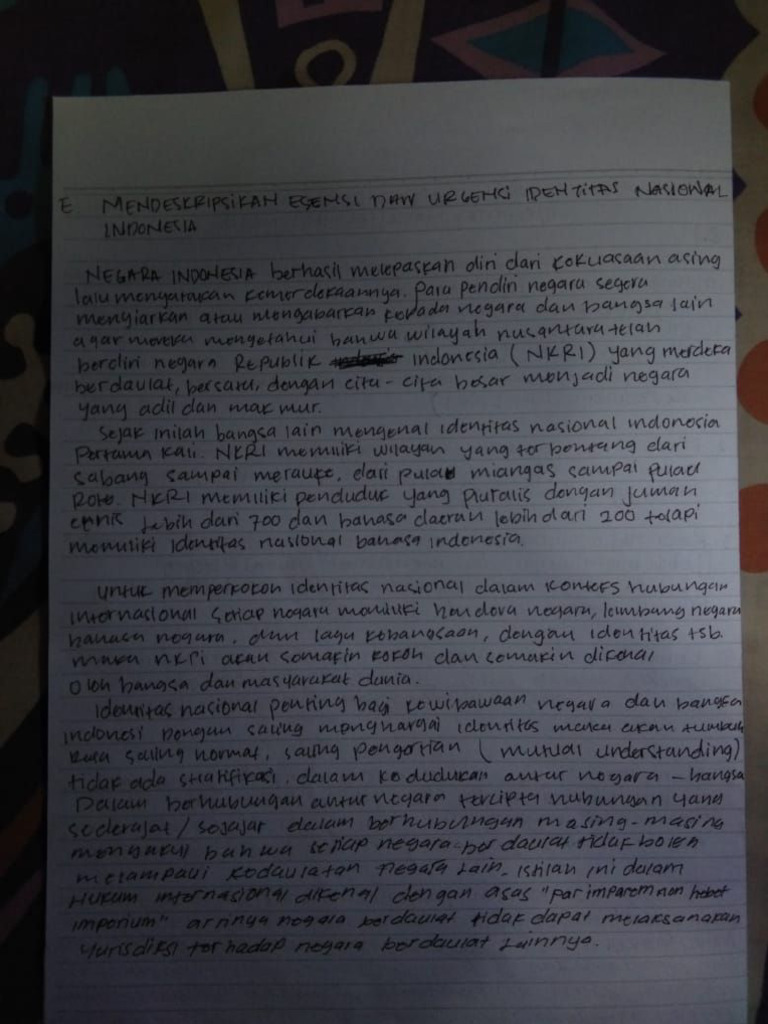 E MENDESKRIPSIKAN ESENSI DAN URGENSI IDENTITAS NASIONAL
INDONESIA
NEGARA INDONESIA berhasil melepaskan diri dari kekuasaan asing
lalu menyatakan kemerdekaannya. Para pendiri negara segera
menyiarkan atau mengabarkan kepada negara dan bangsa lain
agar mereka mengetahui bahwa wilayah nusantara telah
berdiri negara Republik Indonesia (NKRI) yang merdeka
berdaulat, bersatu, dengan cita-cita besar menjadi negara
yang adil dan makmur.
Sejak inilah bangsa lain mengenal identitas nasional indonesia
Pertama kali. NKRI memiliki wilayah yang terbentang dari
sabang sampai merauke, dari pulau miangas sampai pulau
Rote. NKRI memiliki penduduk yang pluralis dengan jumlah
etnis lebih dari 700 dan bahasa daerah lebih dari 200 tetapi
memiliki identitas nasional bahasa indonesia.
untuk memperkokoh identitas nasional dalam konteks hubungan
internasional setiap negara memiliki bendera negara, lambang negara
bahasa negara, dan lagu kebangsaan, dengan identitas tsb.
maka nkri akan semakin kokoh dan semakin dikenal
oleh bangsa dan masyarakat dunia.
Identitas nasional penting bagi kewibawaan negara dan bangsa
indonesi Dengan saling menghargai identitas maka akan tumbuh
rasa saling hormat, saling pengertian (mutual understanding)
tidak ada stratifikasi dalam kedudukan antar negara - bangsa
Dalam berhubungan antar negara tercipta hubungan yang
sederajat / sejajar dalam berhubungan masing-masing
mengakui bahwa setiap negara berdaulat tidak boleh
melampaui kedaulatan negara lain. istilah ini dalam
Hukum internasional dikenal dengan asas "par imparem non hebet
imperium" artinya negara berdaulat tidak dapat melaksanakan
yurisdiksi terhadap negara berdaulat lainnya.